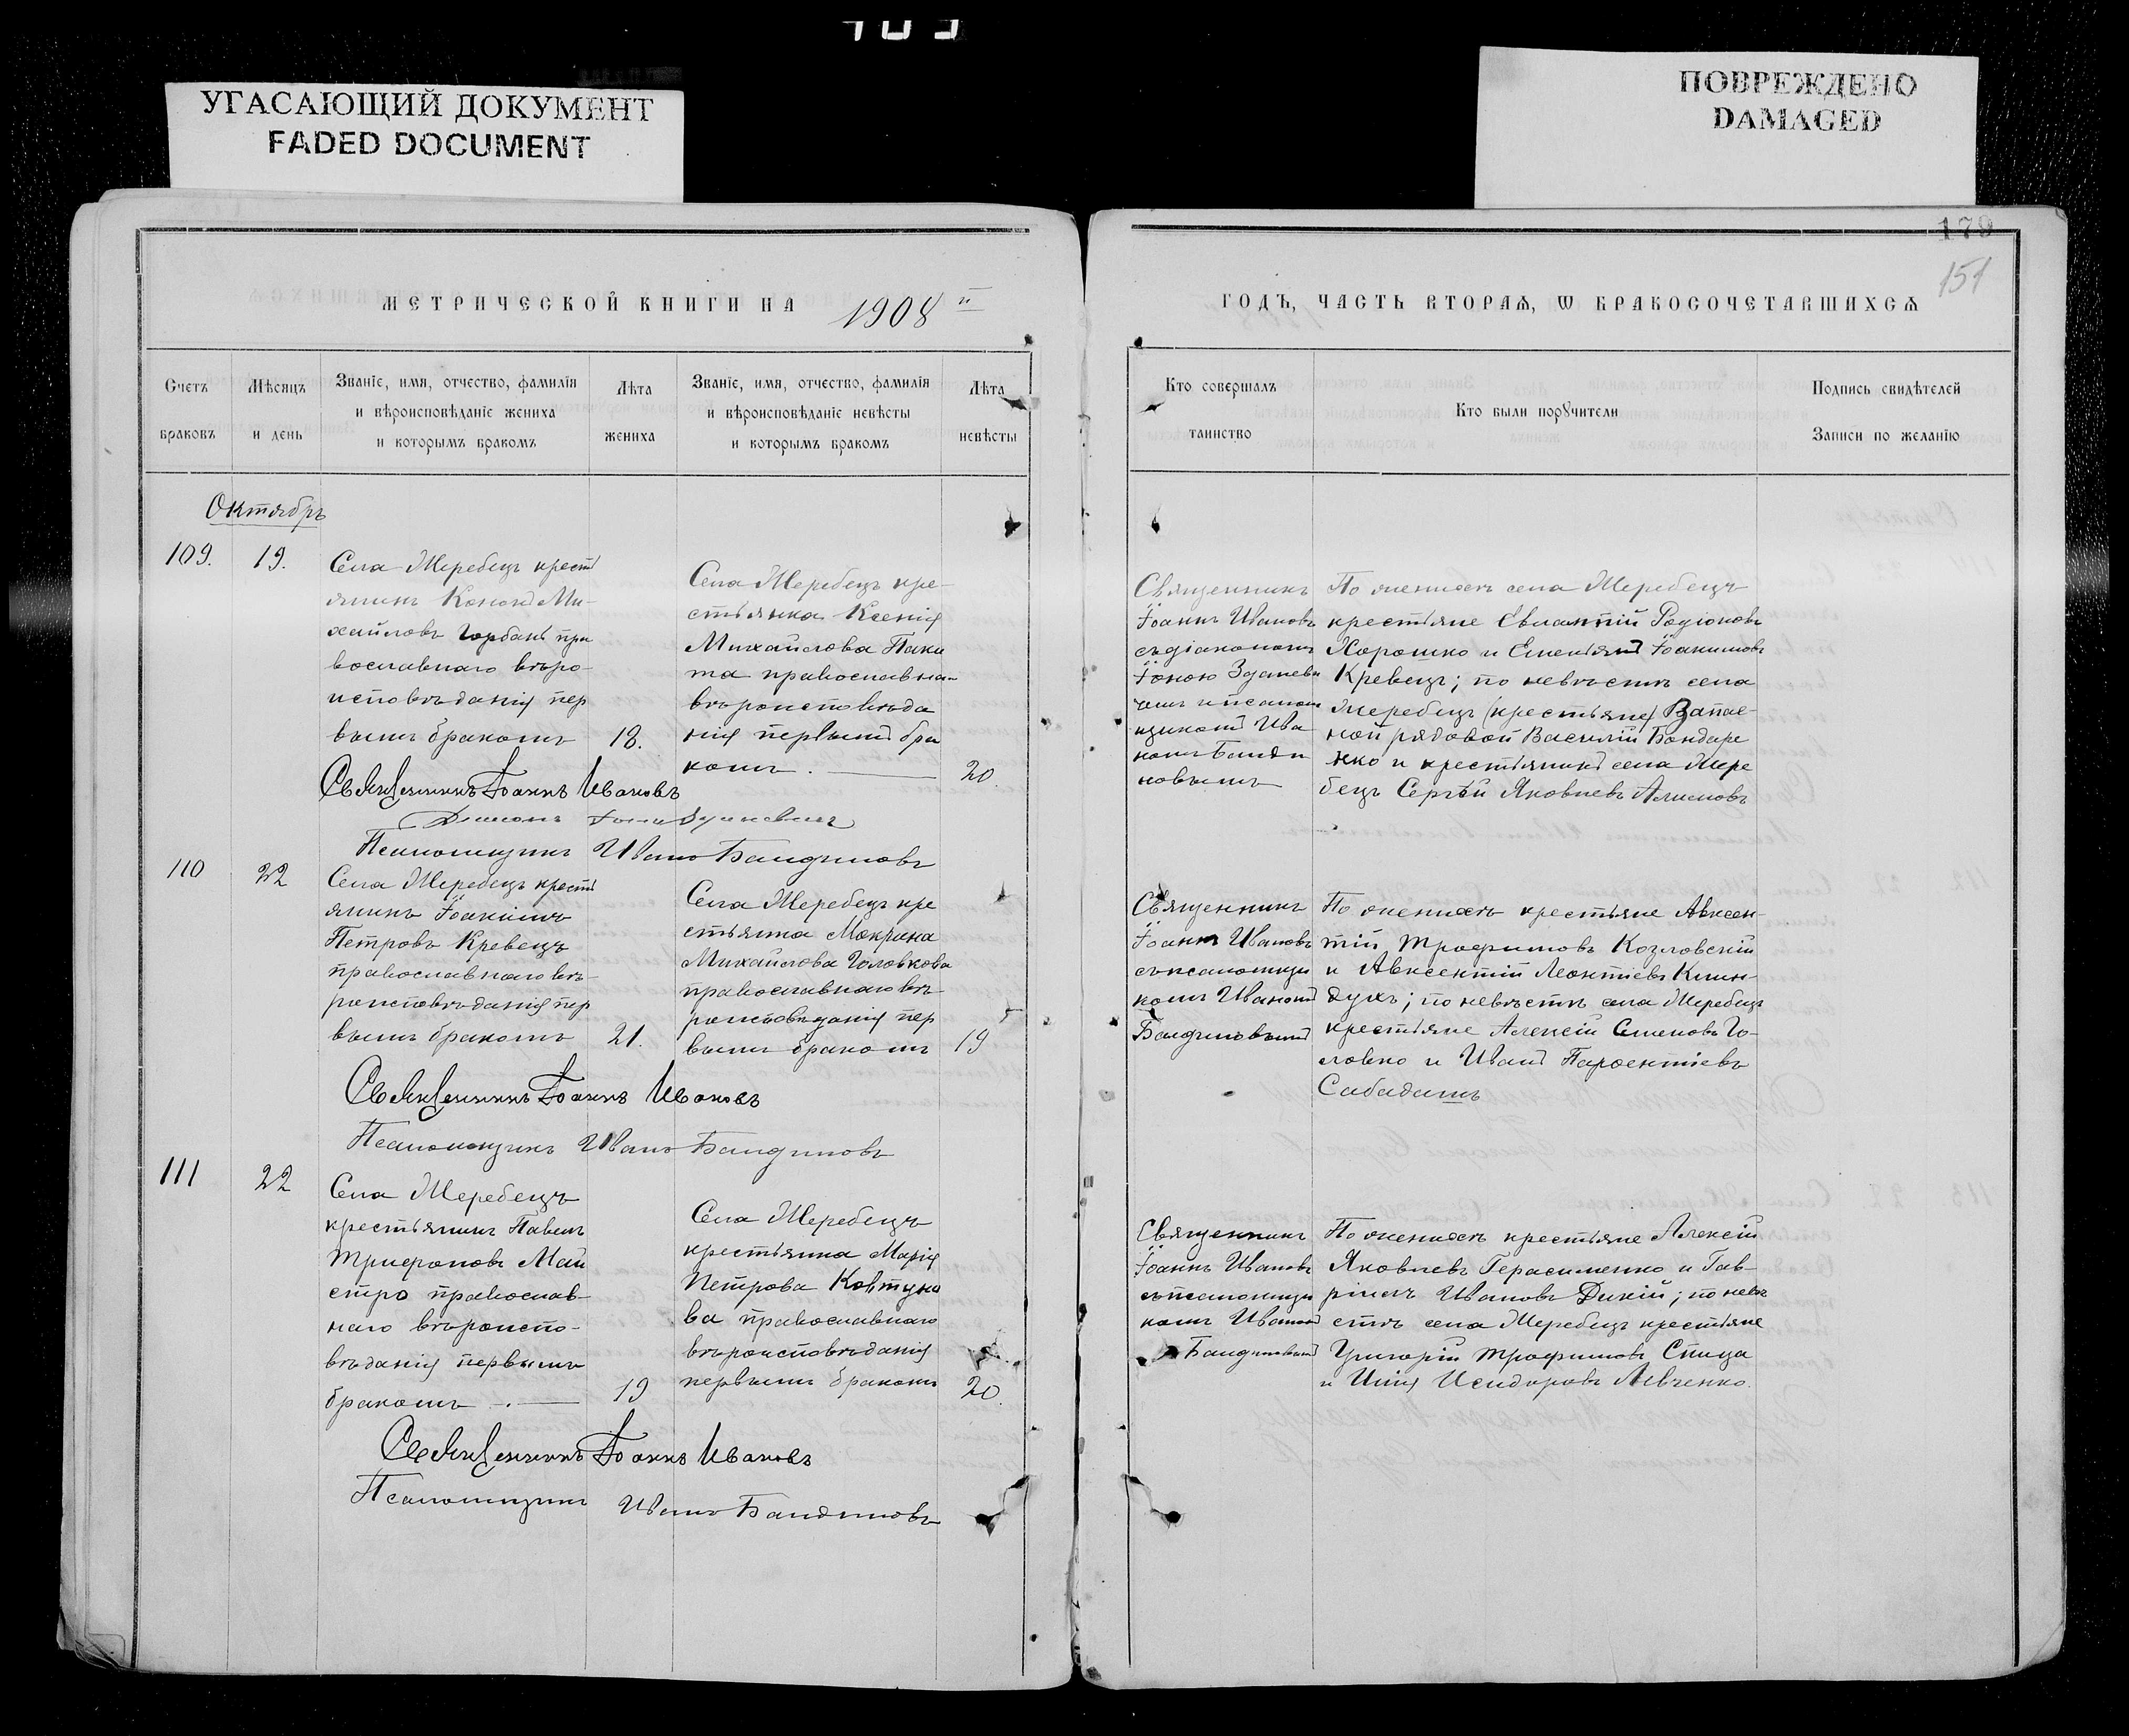 УГАСАЮЩИЙ ДОКУМЕНТ
FADED DOCUMENT
ПОВРЕЖДЕНО
DAMAGED
179
151
МЕТРИЧЕСКОЙ КНИГИ НА 1908 й
ГОДЪ, ЧАСТЬ ВТОРАѦ, Ѡ БРАКОСОЧЕТАВШИХСѦ
Счетъ
браковъ
Мѣсяцъ
и день
Званіе, имя, отчество, фамилія
и вѣроисповѣданіе жениха
и которымъ бракомъ
Лѣта
жениха
Званіе, имя, отчество, фамилія
и вѣроисповѣданіе невѣсты
и которымъ бракомъ
Лѣта
невѣсты
Кто совершалъ
таинство
Кто были порꙋчители
Подпись свидѣтелей
Записи по желанію
Октябрь
109.
19.
Села Жеребецъ крестъ
янинъ Кононъ Ми-
хайловъ Горбань пра
вославнаго вѣро-
исповѣданія пер
вымъ бракомъ
18.
Села Жеребецъ кре-
стьянка Ксенія
Михайлова Паки
та православна-
вѣроисповѣда
нія первымъ бра
комъ.
20.
Священникъ
Іоаннъ Ивановъ
съ діакономъ
Іоною Зданеви
чемъ и псалом
щикомъ Ива
номъ Банди
новымъ
По женихѣ села Жеребецъ
крестьяне Евлампій Родіоновъ
Хорошко и Емельянъ Іоакимовъ
Кревецъ; по невѣстѣ села
Жеребецъ (крестьяне) Запас-
ной рядовой Василій Бондаре
нко и крестьянинъ села Жере
бецъ Сергѣй Яковлевъ Алимовъ
Священникъ Іоаннъ Ивановъ
Діаконъ Іона Зданевичъ
Псаломщикъ Иванъ Бандиновъ
110
22
Села Жеребецъ кресть
янинъ Іоакимъ
Петровъ Кревецъ
православнаго вѣ-
роисповѣданія пер
вымъ бракомъ
21.
Села Жеребецъ кре
стьянка Макрина
Михайлова Головкова
православнаго вѣ-
роисповѣданія пер
вымъ бракомъ
19
Священникъ
Іоаннъ Ивановъ
съ псаломщи
комъ Иваномъ
Бандиновымъ
По женихѣ крестьяне Авксен-
тій Трофимовъ Козловскій
и Авксентій Леонтіевъ Клин-
духъ; по невѣстѣ села Жеребецъ
крестьяне Алексій Семеновъ Го-
ловко и Иванъ Парфентіевъ
Сабадашъ
Священникъ Іоаннъ Ивановъ
Псаломщикъ Иванъ Бандиновъ
111
22
Села Жеребецъ
крестьянинъ Павелъ
Трифоновъ Май
стро православ-
наго вѣроиспо-
вѣданія первымъ
бракомъ.
19
Села Жеребецъ
крестьянка Марія
Петрова Ковтуно
ва православнаго
вѣроисповѣданія
первымъ бракомъ
20.
Священникъ
Іоаннъ Ивановъ
съ псаломщи
комъ Иваномъ
Бандиновымъ
По женихѣ крестьяне Алексій
Яковлевъ Герасименко и Гав-
ріилъ Ивановъ Дикій; по невѣ
стѣ села Жеребецъ крестьяне
Григорій Трофимовъ Спица
и Илія Исидоровъ Левченко.
Священникъ Іоаннъ Ивановъ
Псаломщикъ Иванъ Бандиновъ